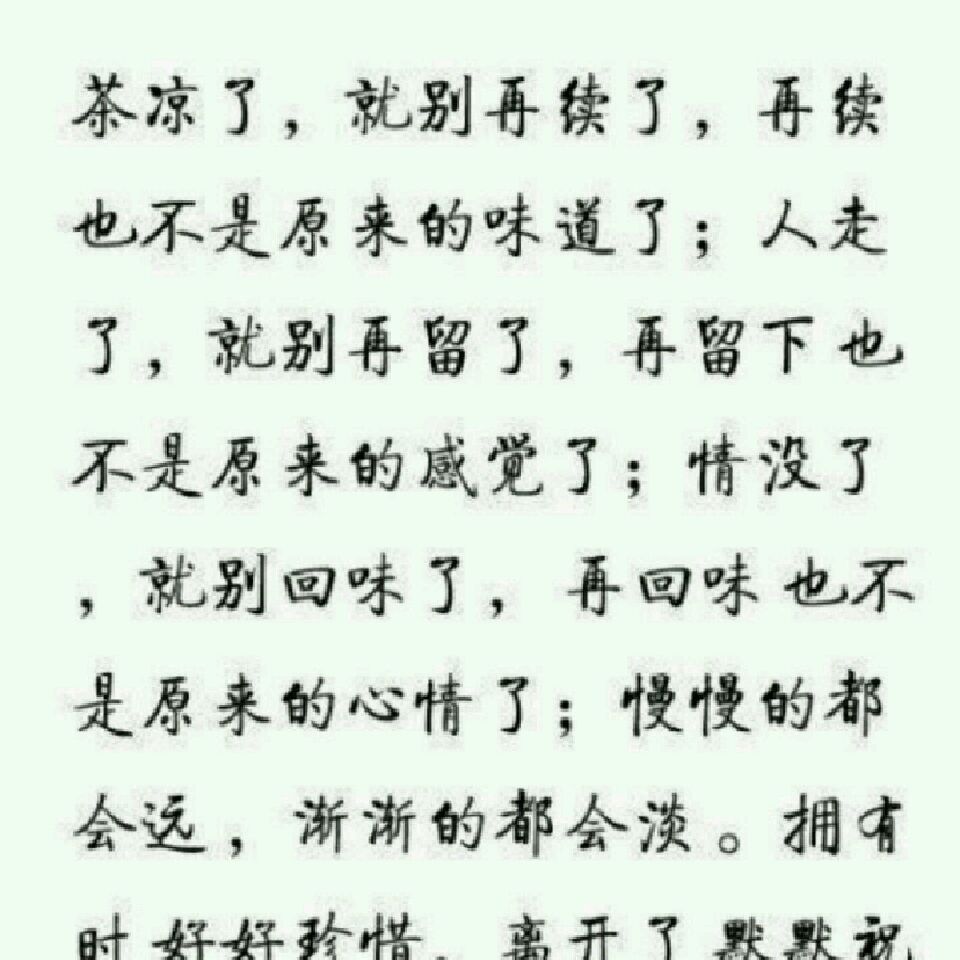 茶凉了，就别再续了，再续
也不是原来的味道了；人走
了，就别再留了，再留下也
不是原来的感觉了；情没了
，就别回味了，再回味也不
是原来的心情了；慢慢的都
会远，渐渐的都会淡。拥有
时好好珍惜，离开了默默祝